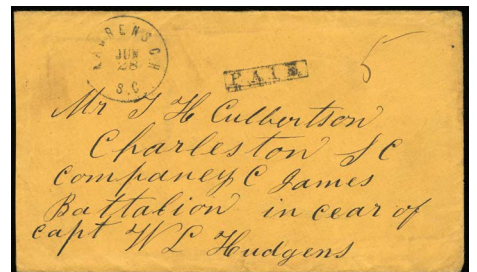 LAURENS C H
JUN
28
S.C.
PAID
5
Mr T H Culbertson
Charleston S C
companey C James
Battalion in cear of
capt W L Hudgens